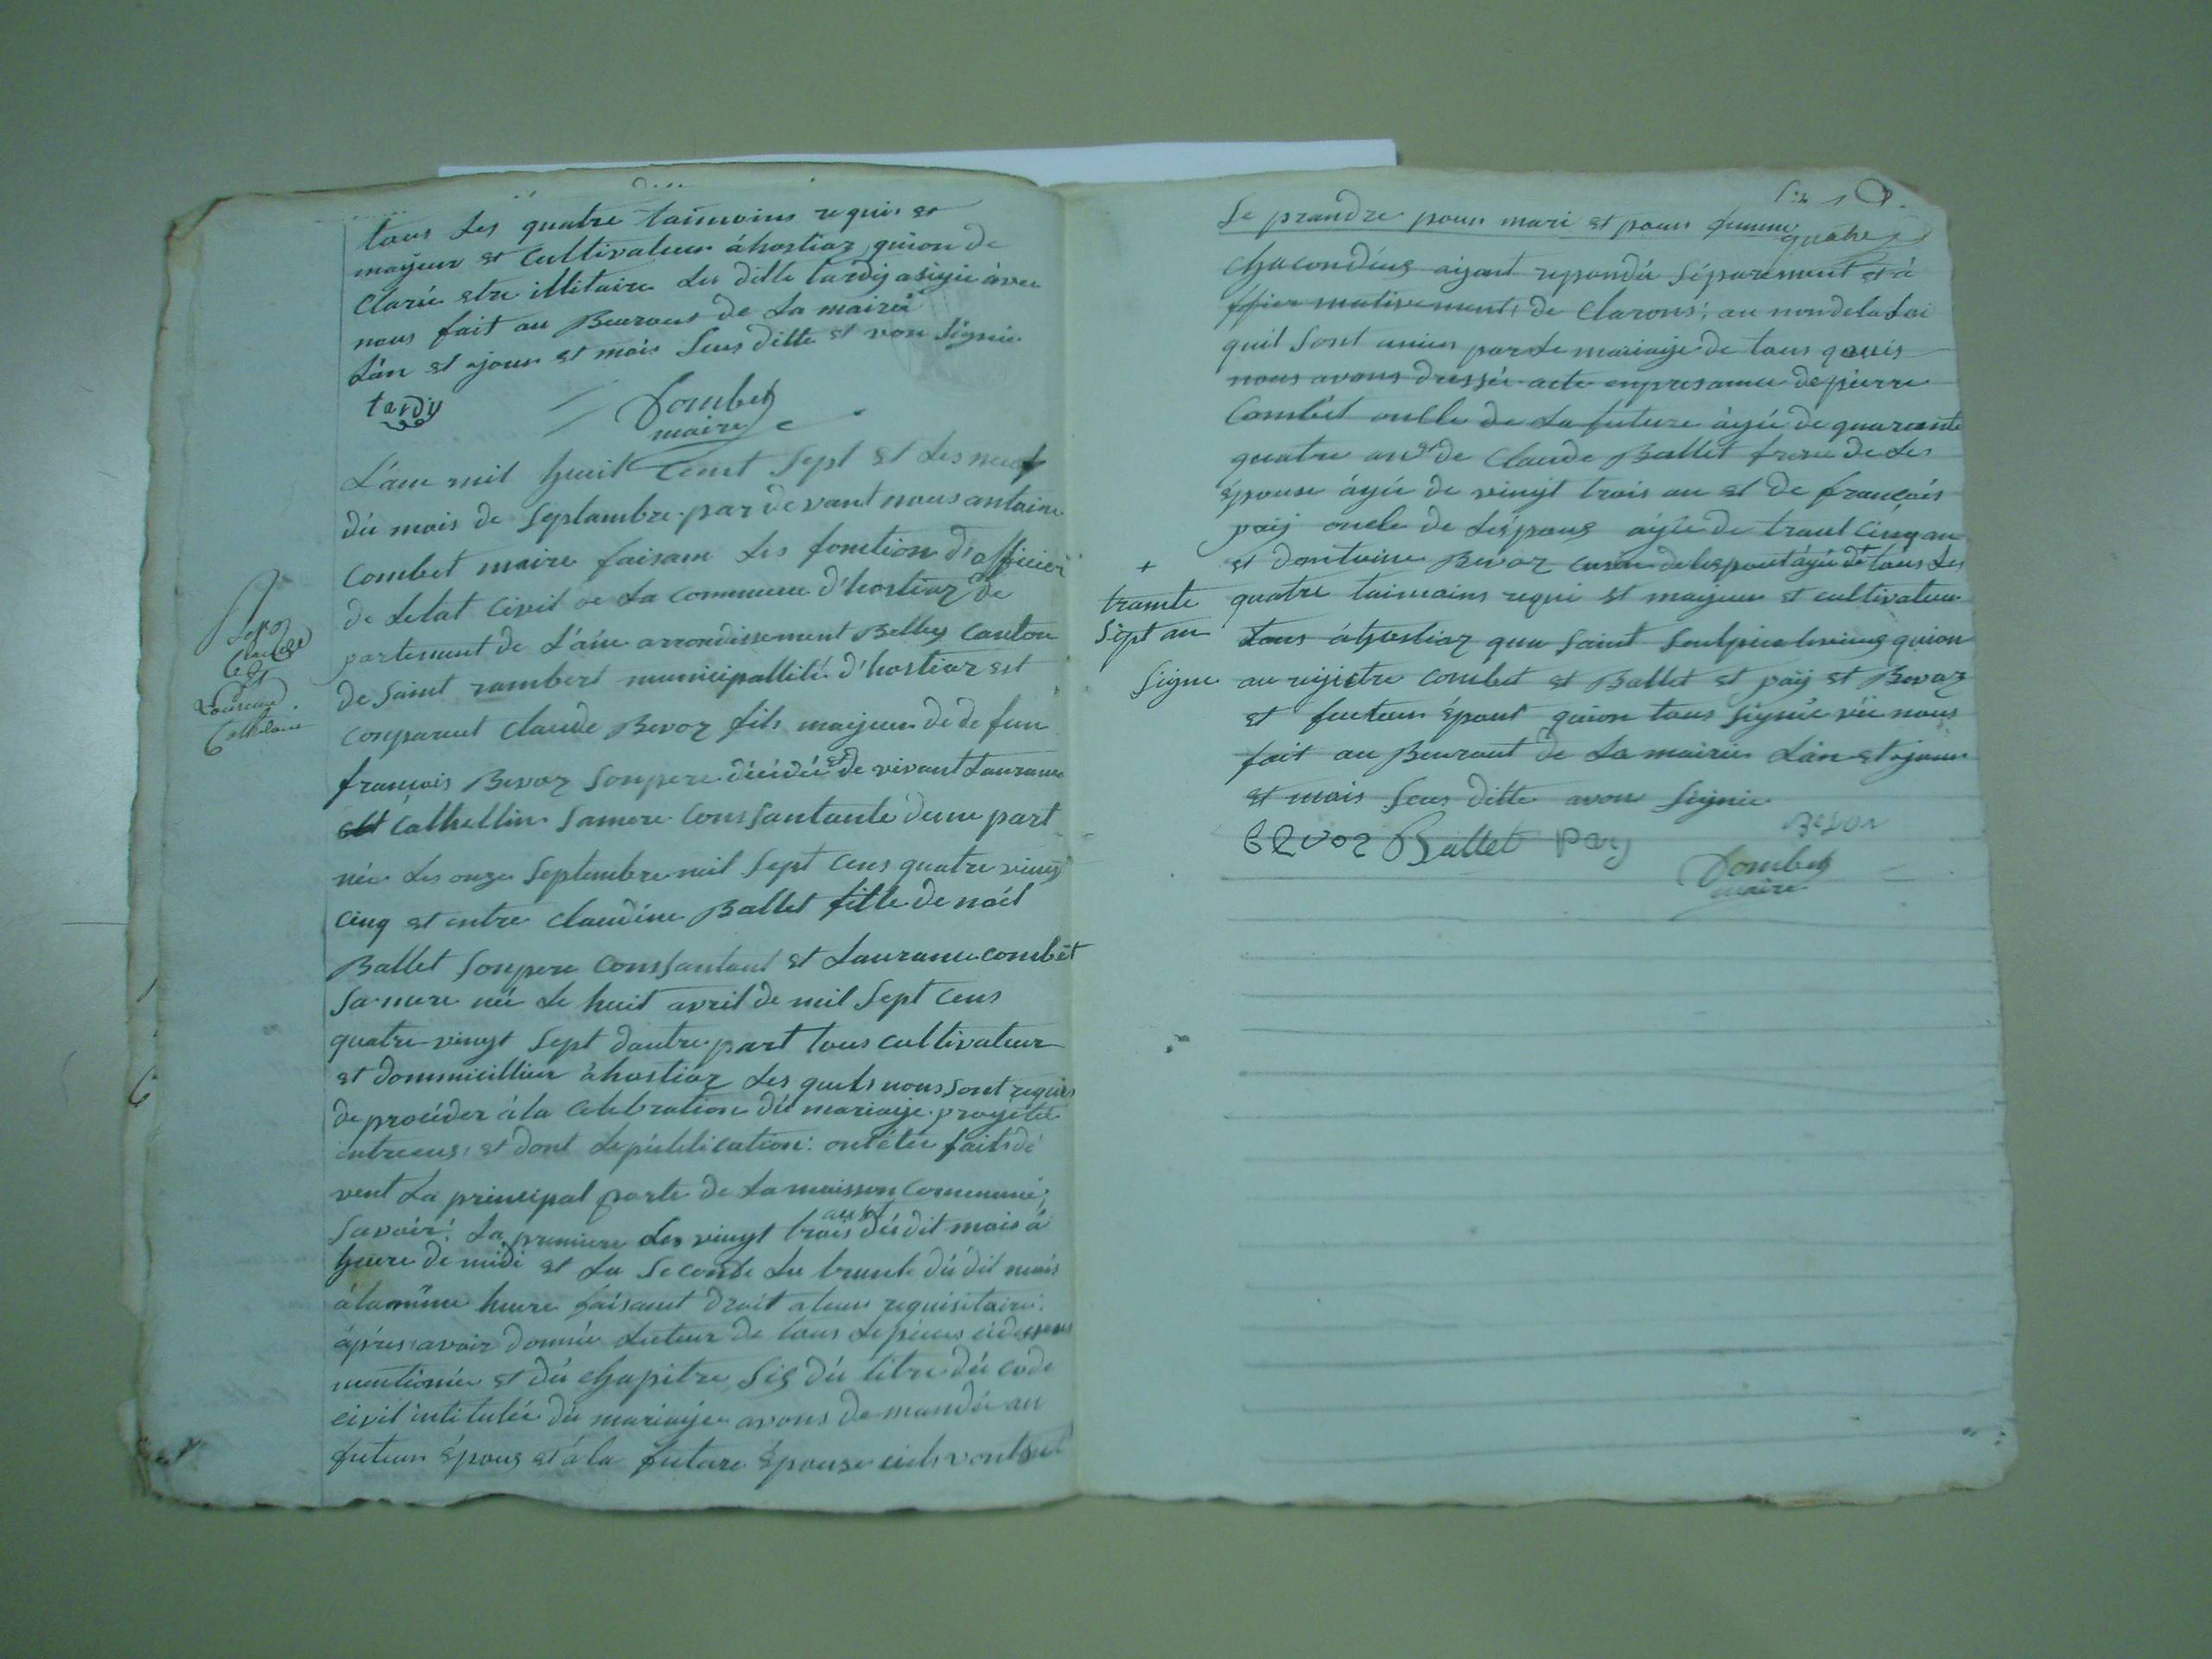 tous Les quatre taimoins requis et
mayeur et Cultivateur á hostiaz quion de
Claréé etre illitaire Les ditte tardy a signié avec
nous fait au Beuraut de La mairië
L'án et ajour et mois Sus ditte et von Signié
tardy
Combet
maire
L'ánn mil huit Cent Sept et Les neuf
dú mois de Septambre par devant nous antoine
Combet maire faisant Les fonction d'officier
de Letat Civil de La Commune d'hostiaz de
partement de L'áin arrondissement Belley Canton
de Saint rambert municipallité d'hostiaz est
Conparut Claude Bevoz fils maijeur de de fun
françois Bevoz Sonpere décédé et de vivant Lauranne
Cathellin Samere Consantante dune part
née Les onze Septembre mil Sept Cens quatre vingt
Cinq et entre Claudine Ballet fille de noël
Ballet Sonpere Consantant et Lauranne combet
Sa mere née Le huit avril de mil Sept Cens
quatre vingt Sept dautre part tous cultivateur
et dommicillier áhostiaz Les quels nous sont requis
de procéder á la Celebration dú mariaije proyété
entreeus, et dont Lepublication: ontétée faitsde
vent La principal porte de La maisson Commune;
Savoir: La premiere Les vingt trois aust dúdit mois á
heure de midi et La Seconde Le trante dúdit mois
álamême heure faisant Droit aleur requisitaire.
áprés avoir donnée Lecteur de tous Lepieces cidessus
mentionée et dú Chapitre Sis dú titre dú code
civil intitulée dú mariaije avons demandée au
futeur Épous et á la future Épouse siils vontsut
Se prandre pour mari et pour femme
quatre
Chacondeus aijant repondú Séparement et á
mativement; de Clarons; au nomdelaLoi
quil Sont unien parLe mariaije de tous quois
nous avons dressée acte enpresance depierre
Combet oncle de La future ájié de quarante
quatre ans et de Claude Ballet frere de Les
épouse ájié de vingt trois an et de françois
paij oncle de Lespous ájié de trant Cinq an
et dantoine Bevoz cusin de Lespout ájié de + tous Les
+
trante
Sept an
quatre taimoins requi et maijeur et cultivateur
tous áhostiaz que Saint Soulpice quion
Signe
au rejistre Combet et Ballet et paij et Bevoz
et futeur épout quion tous Signié vée nous
fait au Beuraut de La mairie L'án et ajour
et mois Sus ditte avons Signié
Bevoz Ballet Pay
Combet
maire